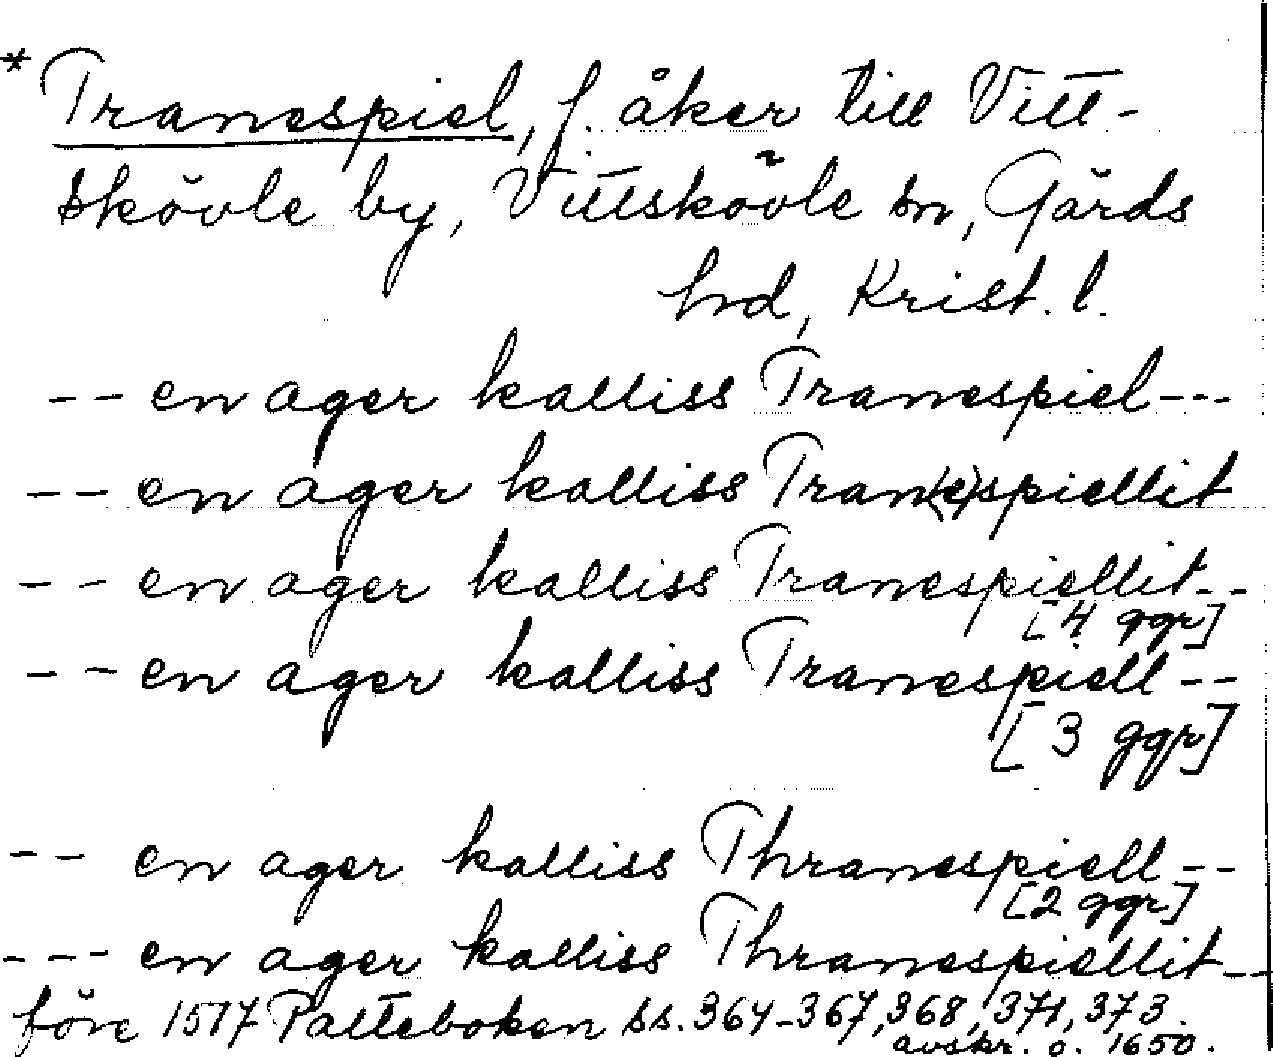 * Tranespiel, f. åker till Vitt-
skövle by, Vittskövle sn, Gärds
hd, Krist. l.
-- en ager kalliss Tranespiel ---
-- en ager kalliss Tran(e)spiellit
-- en ager kalliss Tranespiellit --
[4 ggr]
-- en ager kalliss Tranespiell --
[3 ggr]
-- en ager kalliss Thranespiell --
[2 ggr]
--- en ager kalliss Thranespiellit --
före 1517 Palteboken ss. 364-367, 368, 371, 373.
avskr. o. 1650.